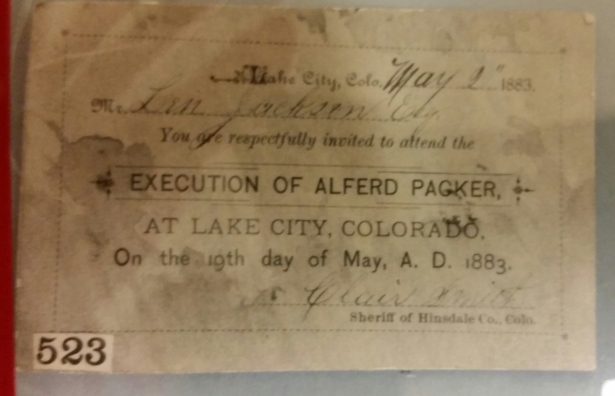 Lake City, Colo. May 2" 1883.
Mr. Jackson Esq
You are respectfully invited to attend the
EXECUTION OF ALFERD PACKER,
AT LAKE CITY, COLORADO,
On the 19th day of May, A. D. 1883.
Clair Smith
Sheriff of Hinsdale Co., Colo.
523